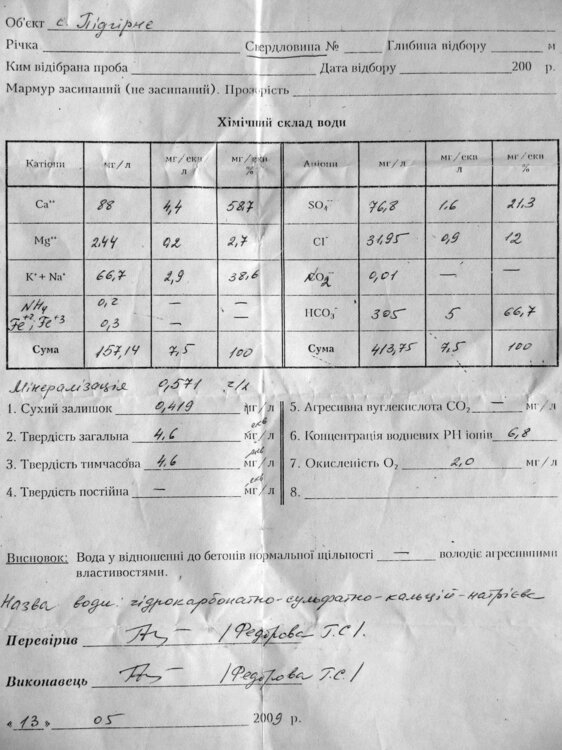 Об'єкт с. Підгірне
Річка Свердловина № Глибина відбору м
Ким відібрана проба Дата відбору 200 р.
Мармур засипаний (не засипаний). Прозорість
Хімічний склад води
Катіони мг/л мг/екв л мг/екв % Аніони мг/л мг/екв л мг/екв %
Ca++ 88 4,4 58,7 SO4-- 76,8 1.6 21,3
Mg++ 2,44 0,2 2,7 Cl- 31,95 0,9 12
K+ + Na+ 66,7 2,9 38,6 NO2 0,01 — —
NH4 0,2 — — HCO3- 305 5 66,7
Fe+2, Fe+3 0,3 — —
Сума 157,14 7,5 100 Сума 413,75 7,5 100
Мінералізація 0,571 г/л
1. Сухий залишок 0,419 мг/л 5. Агресивна вуглекислота CO2 — мг/л
2. Твердість загальна 4,6 мг екв/л 6. Концентрація водневих PH іонів 6,8
3. Твердість тимчасова 4,6 мг екв/л 7. Окисленість O2 2,0 мг/л
4. Твердість постійна — мг екв/л 8.
Висновок: Вода у відношенні до бетонів нормальної щільності — володіє агресивними
властивостями.
Назва води: гідрокарбонатно-сульфатно-кальцій-натрієва
Перевірив /Федорова Т.С/.
Виконавець /Федорова Т.С/
«13» 05 2009 р.